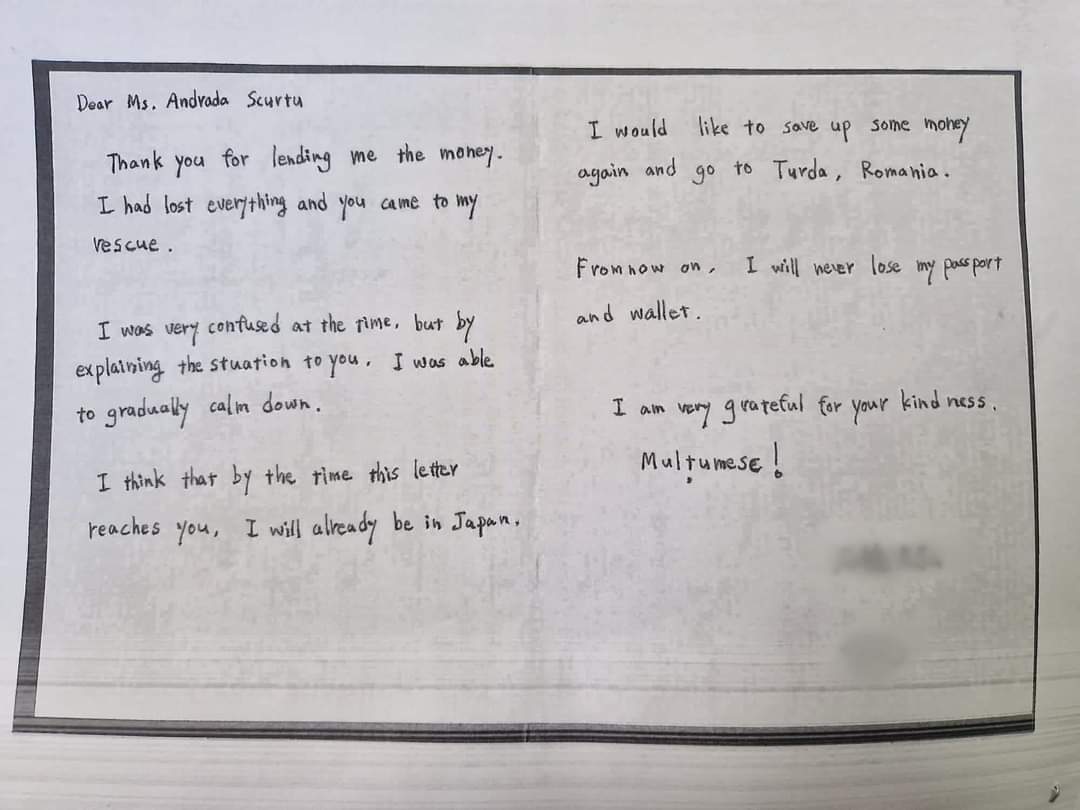 Dear Ms. Andrada Scurtu
Thank you for lending me the money.
I had lost everything and you came to my
rescue.
I was very confused at the time, but by
explaining the stuation to you, I was able
to gradually calm down.
I think that by the time this letter
reaches you, I will already be in Japan.
I would like to save up some money
again and go to Turda, Romania.
From now on, I will never lose my passport
and wallet.
I am very grateful for your kindness.
Mulțumesc!